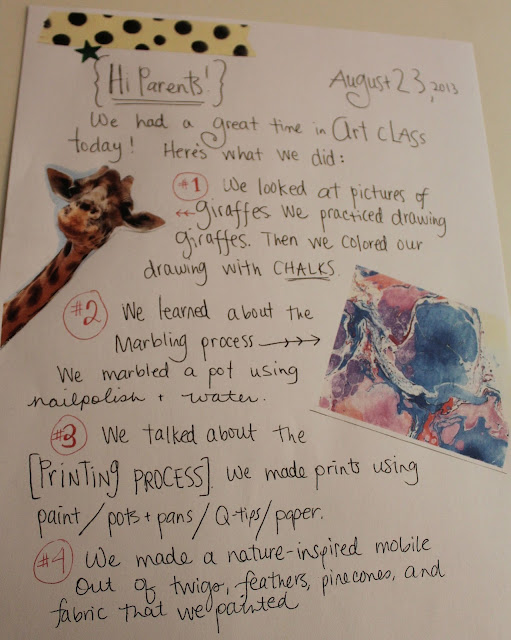 {Hi Parents!}
August 23, 2013
We had a great time in Art Class
today! Here's what we did:
#1 We looked at pictures of
giraffes. We practiced drawing
giraffes. Then we colored our
drawing with CHALKS.
#2 We learned about the
Marbling process
We marbled a pot using
nailpolish + water.
#3 We talked about the
[PRINTING PROCESS]. We made prints using
paint/pots + pans/Q-tips/paper.
#4 We made a nature-inspired mobile
out of twigs, feathers, pinecones, and
fabric that we painted